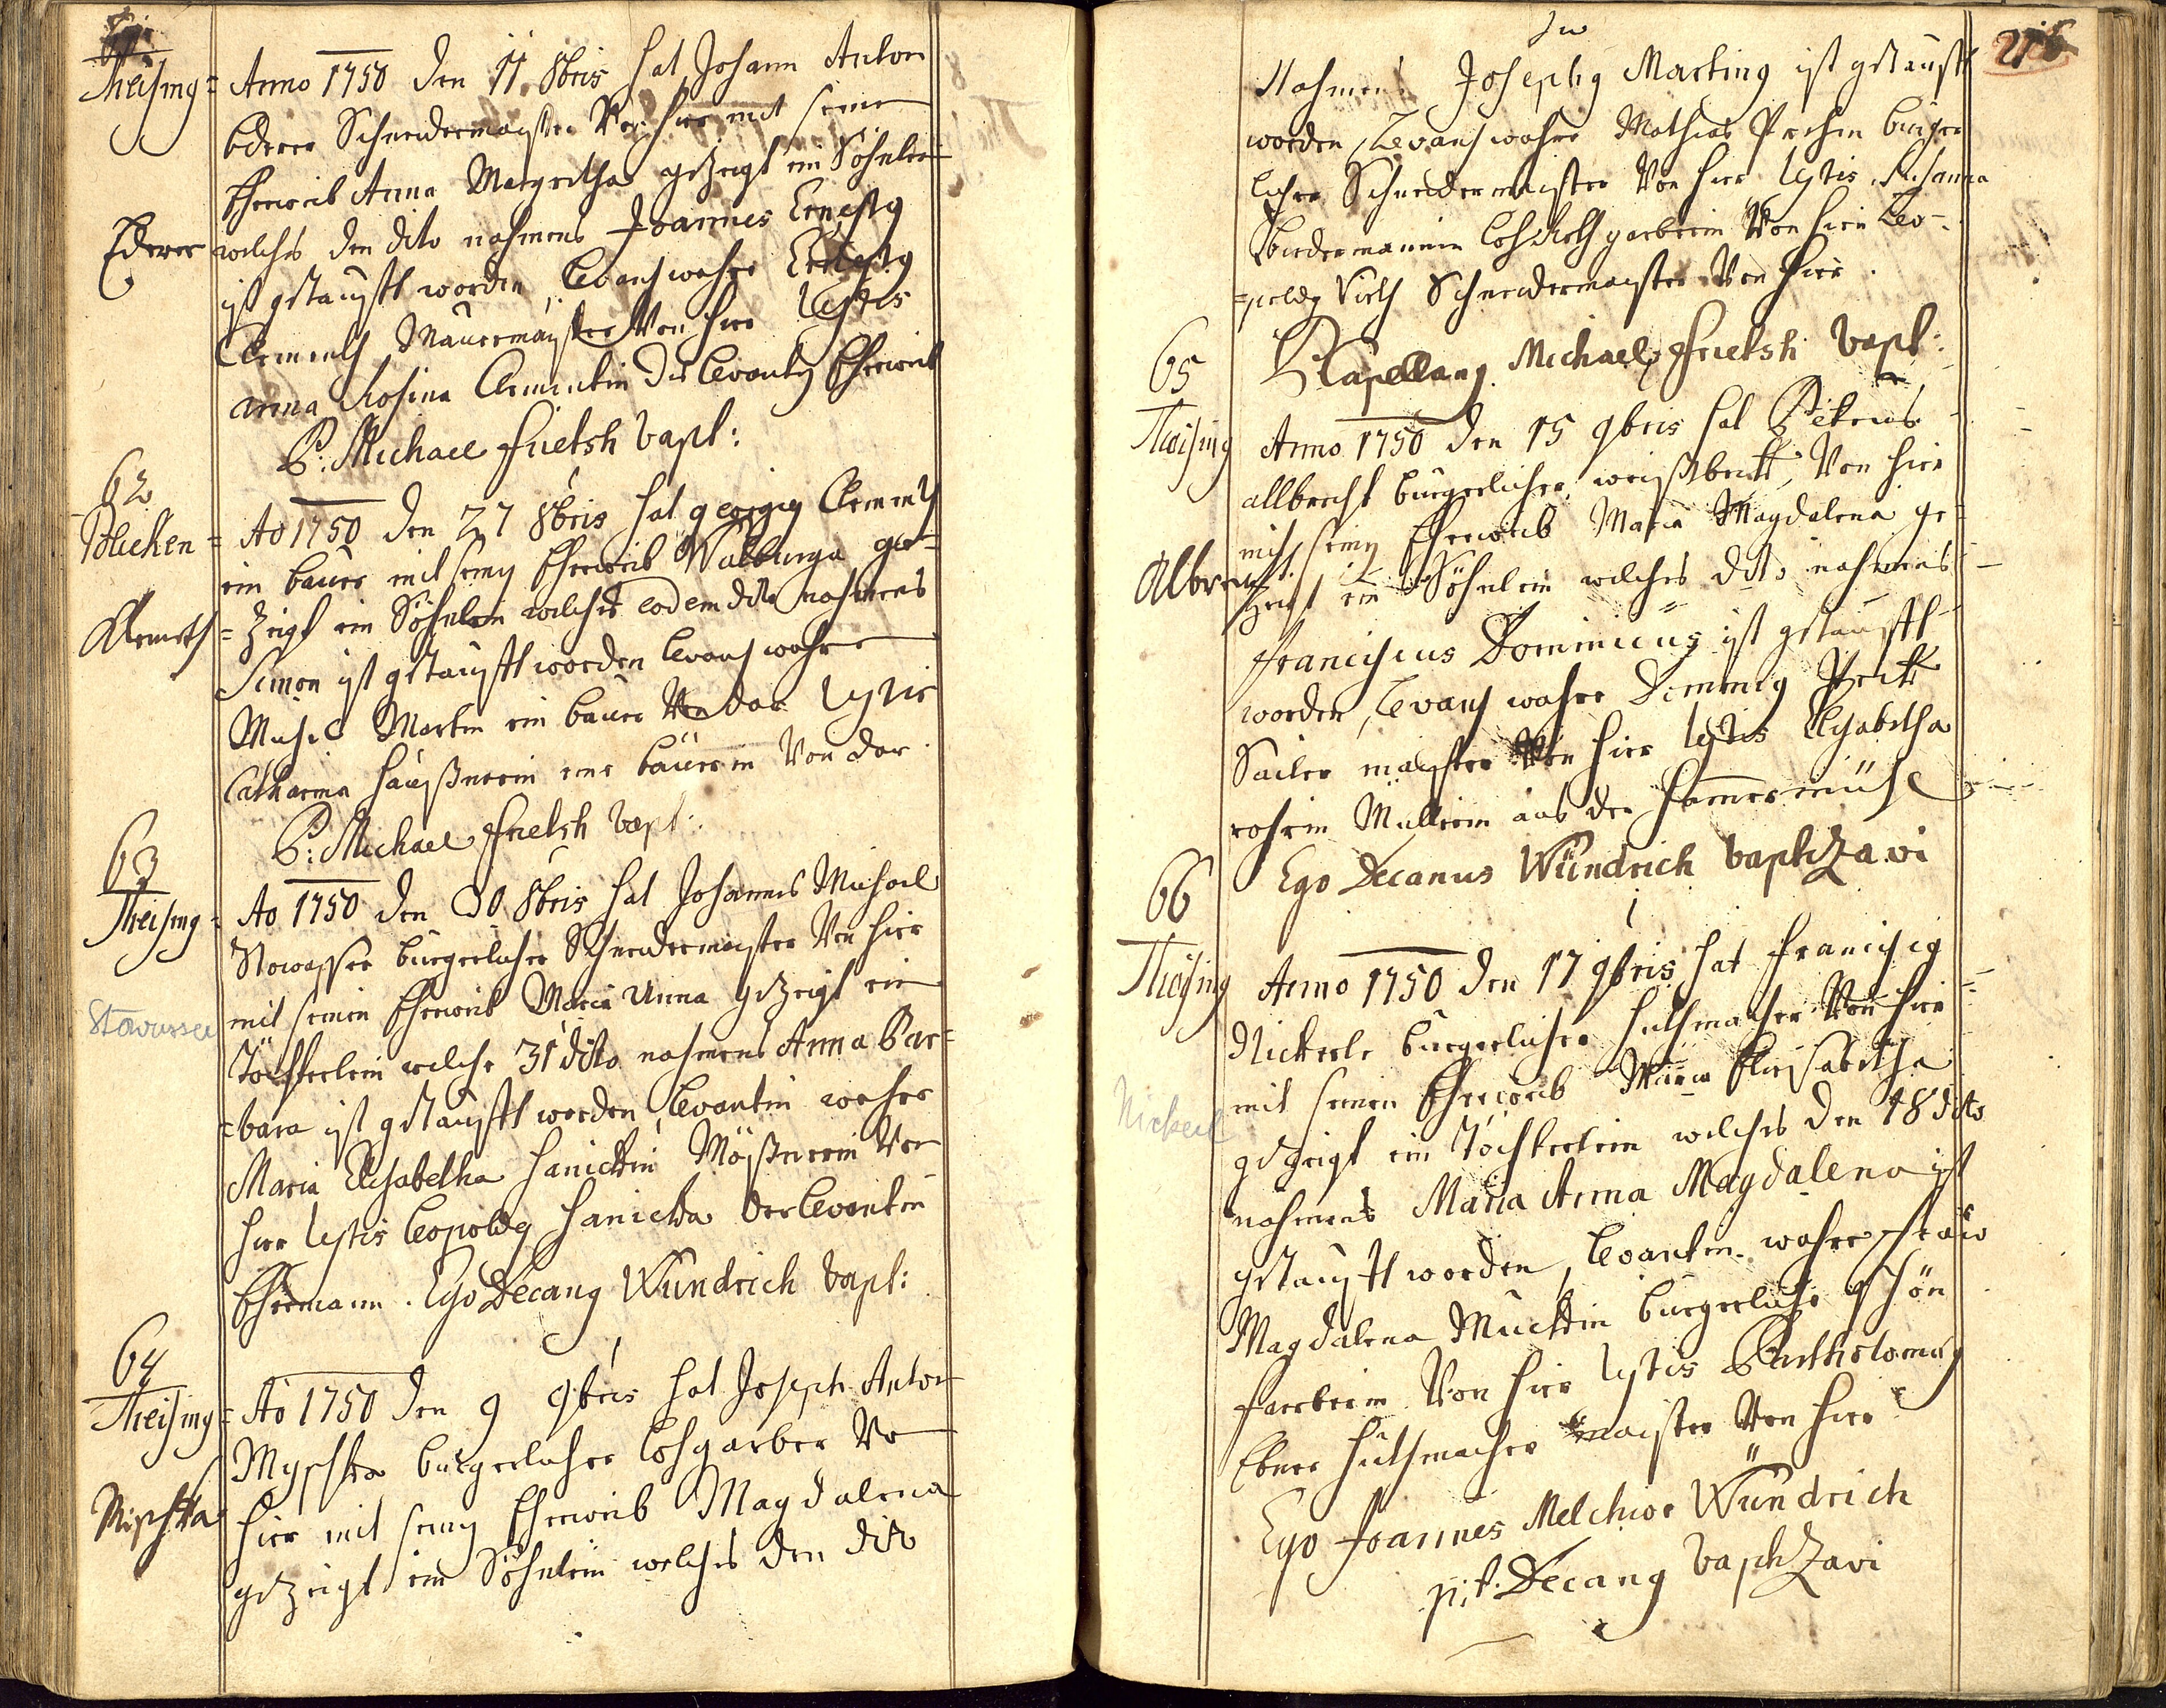 Theising =
Anno 1750 den 11. 8bris hat Johann Anton
Ederer Schneidermaister Von hier mit seine
Eheweib Anna Margretha gezeigt ein Söhnlein
Ederer
welches den dito nahmens Joannes Ernestg
ist getaufft worden, Levans wahre Ernestg
Clementh Maurermaister Von hier testis
anna Rosina Clementin des Levantis Eheweib
P: Michael Frietsh bapt:
62
Policken =
Ao 1750 den 27 8bris hat georgig Clementh
ein baur mit seinn Eheweib Walburga ge=
Klemeth
= zeigt ein Söhnlein welches eodem dito nahmens
Simon ist getaufft worden Levans wahre
Michl Martin ein baur Von dar testis
Catharina haußnerin eine bäuerin Von dar
P: Michael Frietsh bapt:
63
Theising =
Ao 1750 den 30 8bris hat Johannes Michael
Stowasser burgerlicher Schneidermaister Von hier
mit seinen Eheweib Maria Anna gezeigt ein
Stowasser
Töchterlein welche 31 dito nahmens Anna Bar=
=bara ist getaufft worden, Levantin wahre
Maria Elisabetha hanickin Mößnerin Von
hier testis Leopoldg hanicka der Levantin
Ehemann. Ego Decang Wündrich bapt:
64
Theising
= Ao 1750 den 9 9bris hat Joseph Anton
Myschka burgerlicher Lohgarber Von
Mischka
hier mit seinn Eheweib Magdalena
gezeigt ein Söhnlein welches den dito
Nahmen Josephg Marting ist getaufft
worden, Levans wahre Mathias burger
licher Schneidermaister Von hier testis Susanna
biedermannin Lohrothgarberin Von hier Leo=
=poldg Schneidermaister Von hier.
Capellang Michael Frietsh bapt:
65
Theising
Anno 1750 den 15 9bris hat Petrus
allbrecht burgerlicher weißbeckh Von hier
mit seinn Eheweib Maria Magdalena ge=
Albrecht
zeigt ein Söhnlein welches dito nahmens
Franciscus Dominicus ist getaufft
worden, Levans wahre Dominig
Sailer maister Von hier testis Elisabetha
rohrin Mullerin aus der hammermühl
Ego Decanus Wündrich baptizavi
66
Theising
Anno 1750 den 17 9bris hat Francisig
Nickerle burgerlicher huthmacher Von hier
mit seinen Eheweib Maria Elisabetha
Nickerl
gezeigt ein Töchterlein welches den 18 dito
nahmens Maria Anna Magdalena ist
getaufft worden, Levantin wahre frau
Magdalena Muckin burgerliche schön
farberin Von hier testis Bartholomeg
Ebner huthmacher maister Von hier
Ego Joannes Melchior Wündrich
p: t: Decang baptizavi